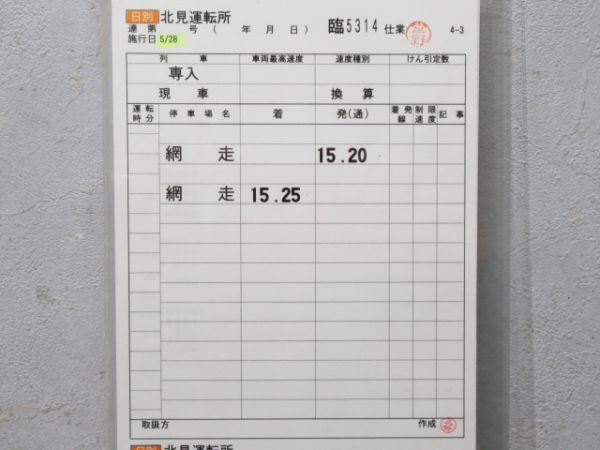 日別 北見運転所
達 第 号 ( 年 月 日 ) 臨5314 仕業 4-3
施行日 5/28
列車 車両最高速度 速度種別 けん引定数
専入
現車 換算
運転時分 停車場名 着 発(通) 着発線 制限速度 記事
網走 15.20
網走 15.25
取扱方 作成
日別 北見運転所